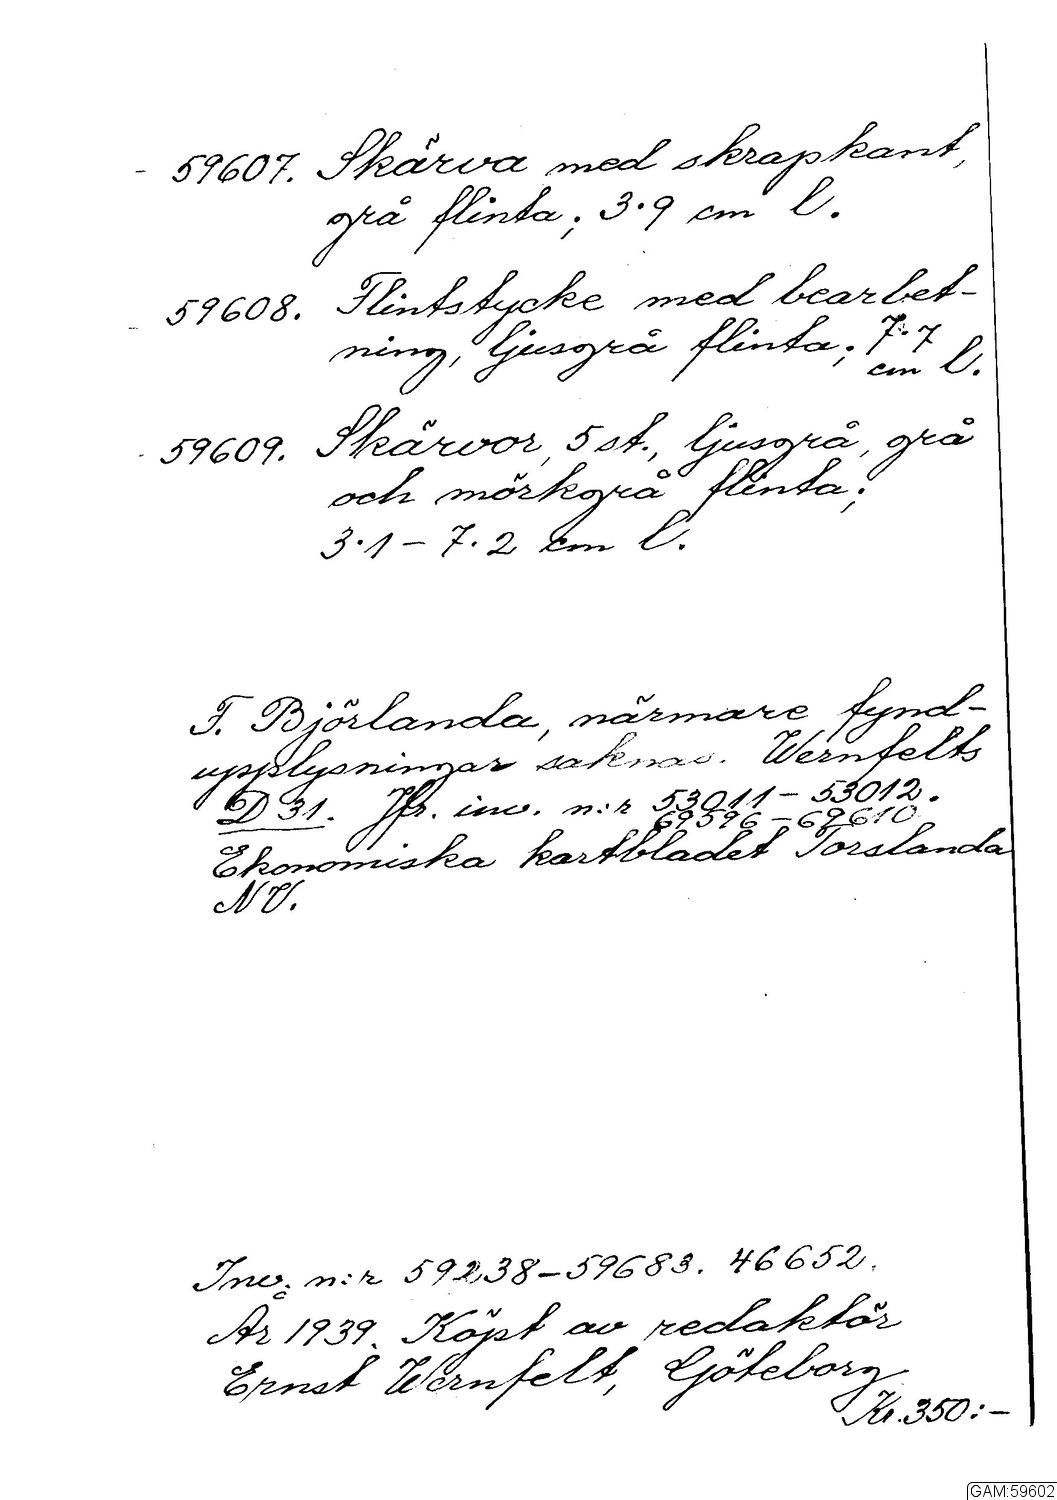 59607. Skärva med skrapkant,
grå flinta; 3.9 cm l.
59608. Flintstycke med bearbet-
ning, ljusgrå flinta; 7.7
cm l.
59609. Skärvor, 5 st., ljusgrå, grå
och mörkgrå flinta;
3.1 – 7.2 cm l.
F. Björlanda, närmare fynd-
upplysningar saknas. Wernfelts
D 31. Jfr. inv. n:r 53011 – 53012.
69596 – 69610
Ekonomiska kartbladet Torslanda
NV.
Inv. n:r 59238 – 59683. 46652.
År 1939. Köpt av redaktör
Ernst Wernfelt, Göteborg
Kr. 350:–
GAM:59602